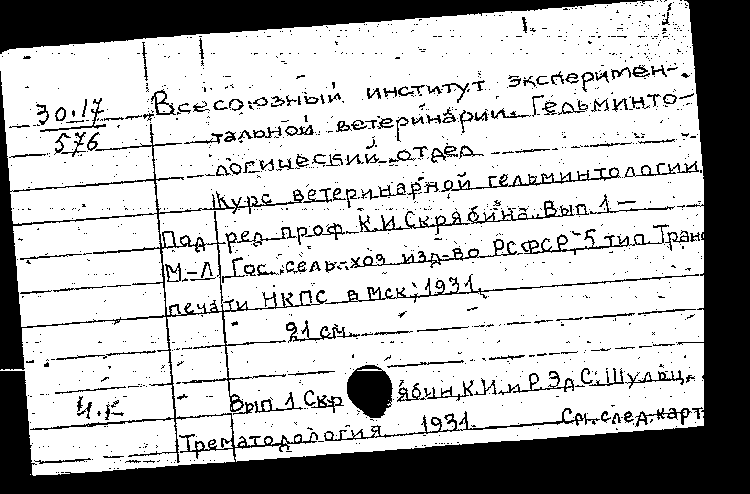 30.17
576
Всесоюзный институт эксперимен-
тальной ветеринарии. Гельминто-
логический отдел
Курс ветеринарной гельминтологии
Под ред. проф. К.И. Скрябина. Вып. 1 —
М.-Л. Гос. сель.-хоз изд-во РСФСР, 5 тип Транс
печати НКПС в Мск; 1931.
21 см.
Вып. 1 Скрябин, К.И. и Р. Эд С. Шульц.
Ч.К
Трематодология 1931. См. след. карт